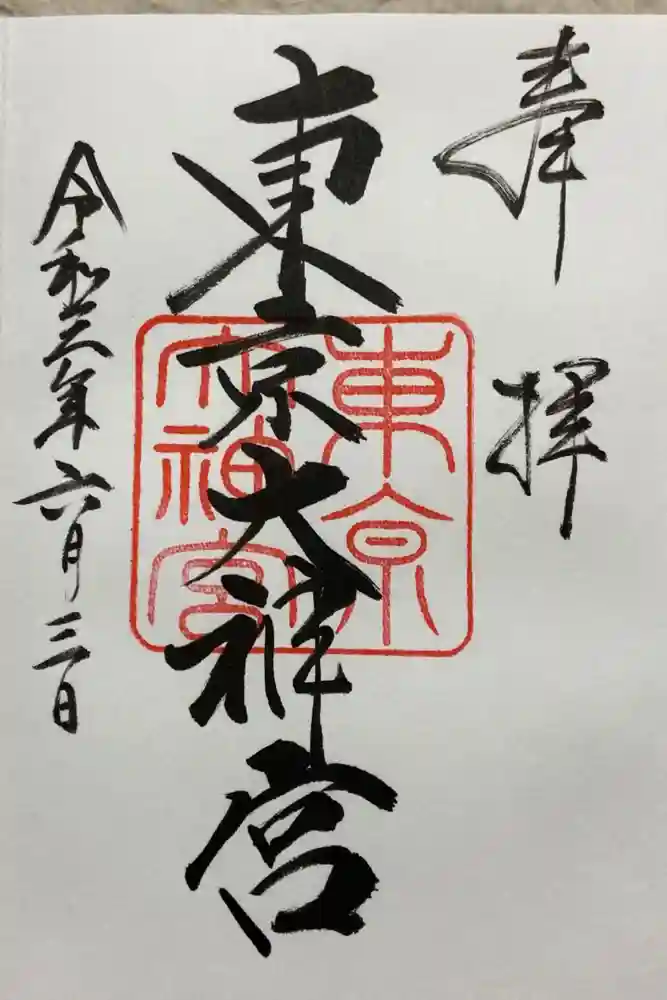 奉拝
東京大神宮
東京
大神宮
令和 年六月三日